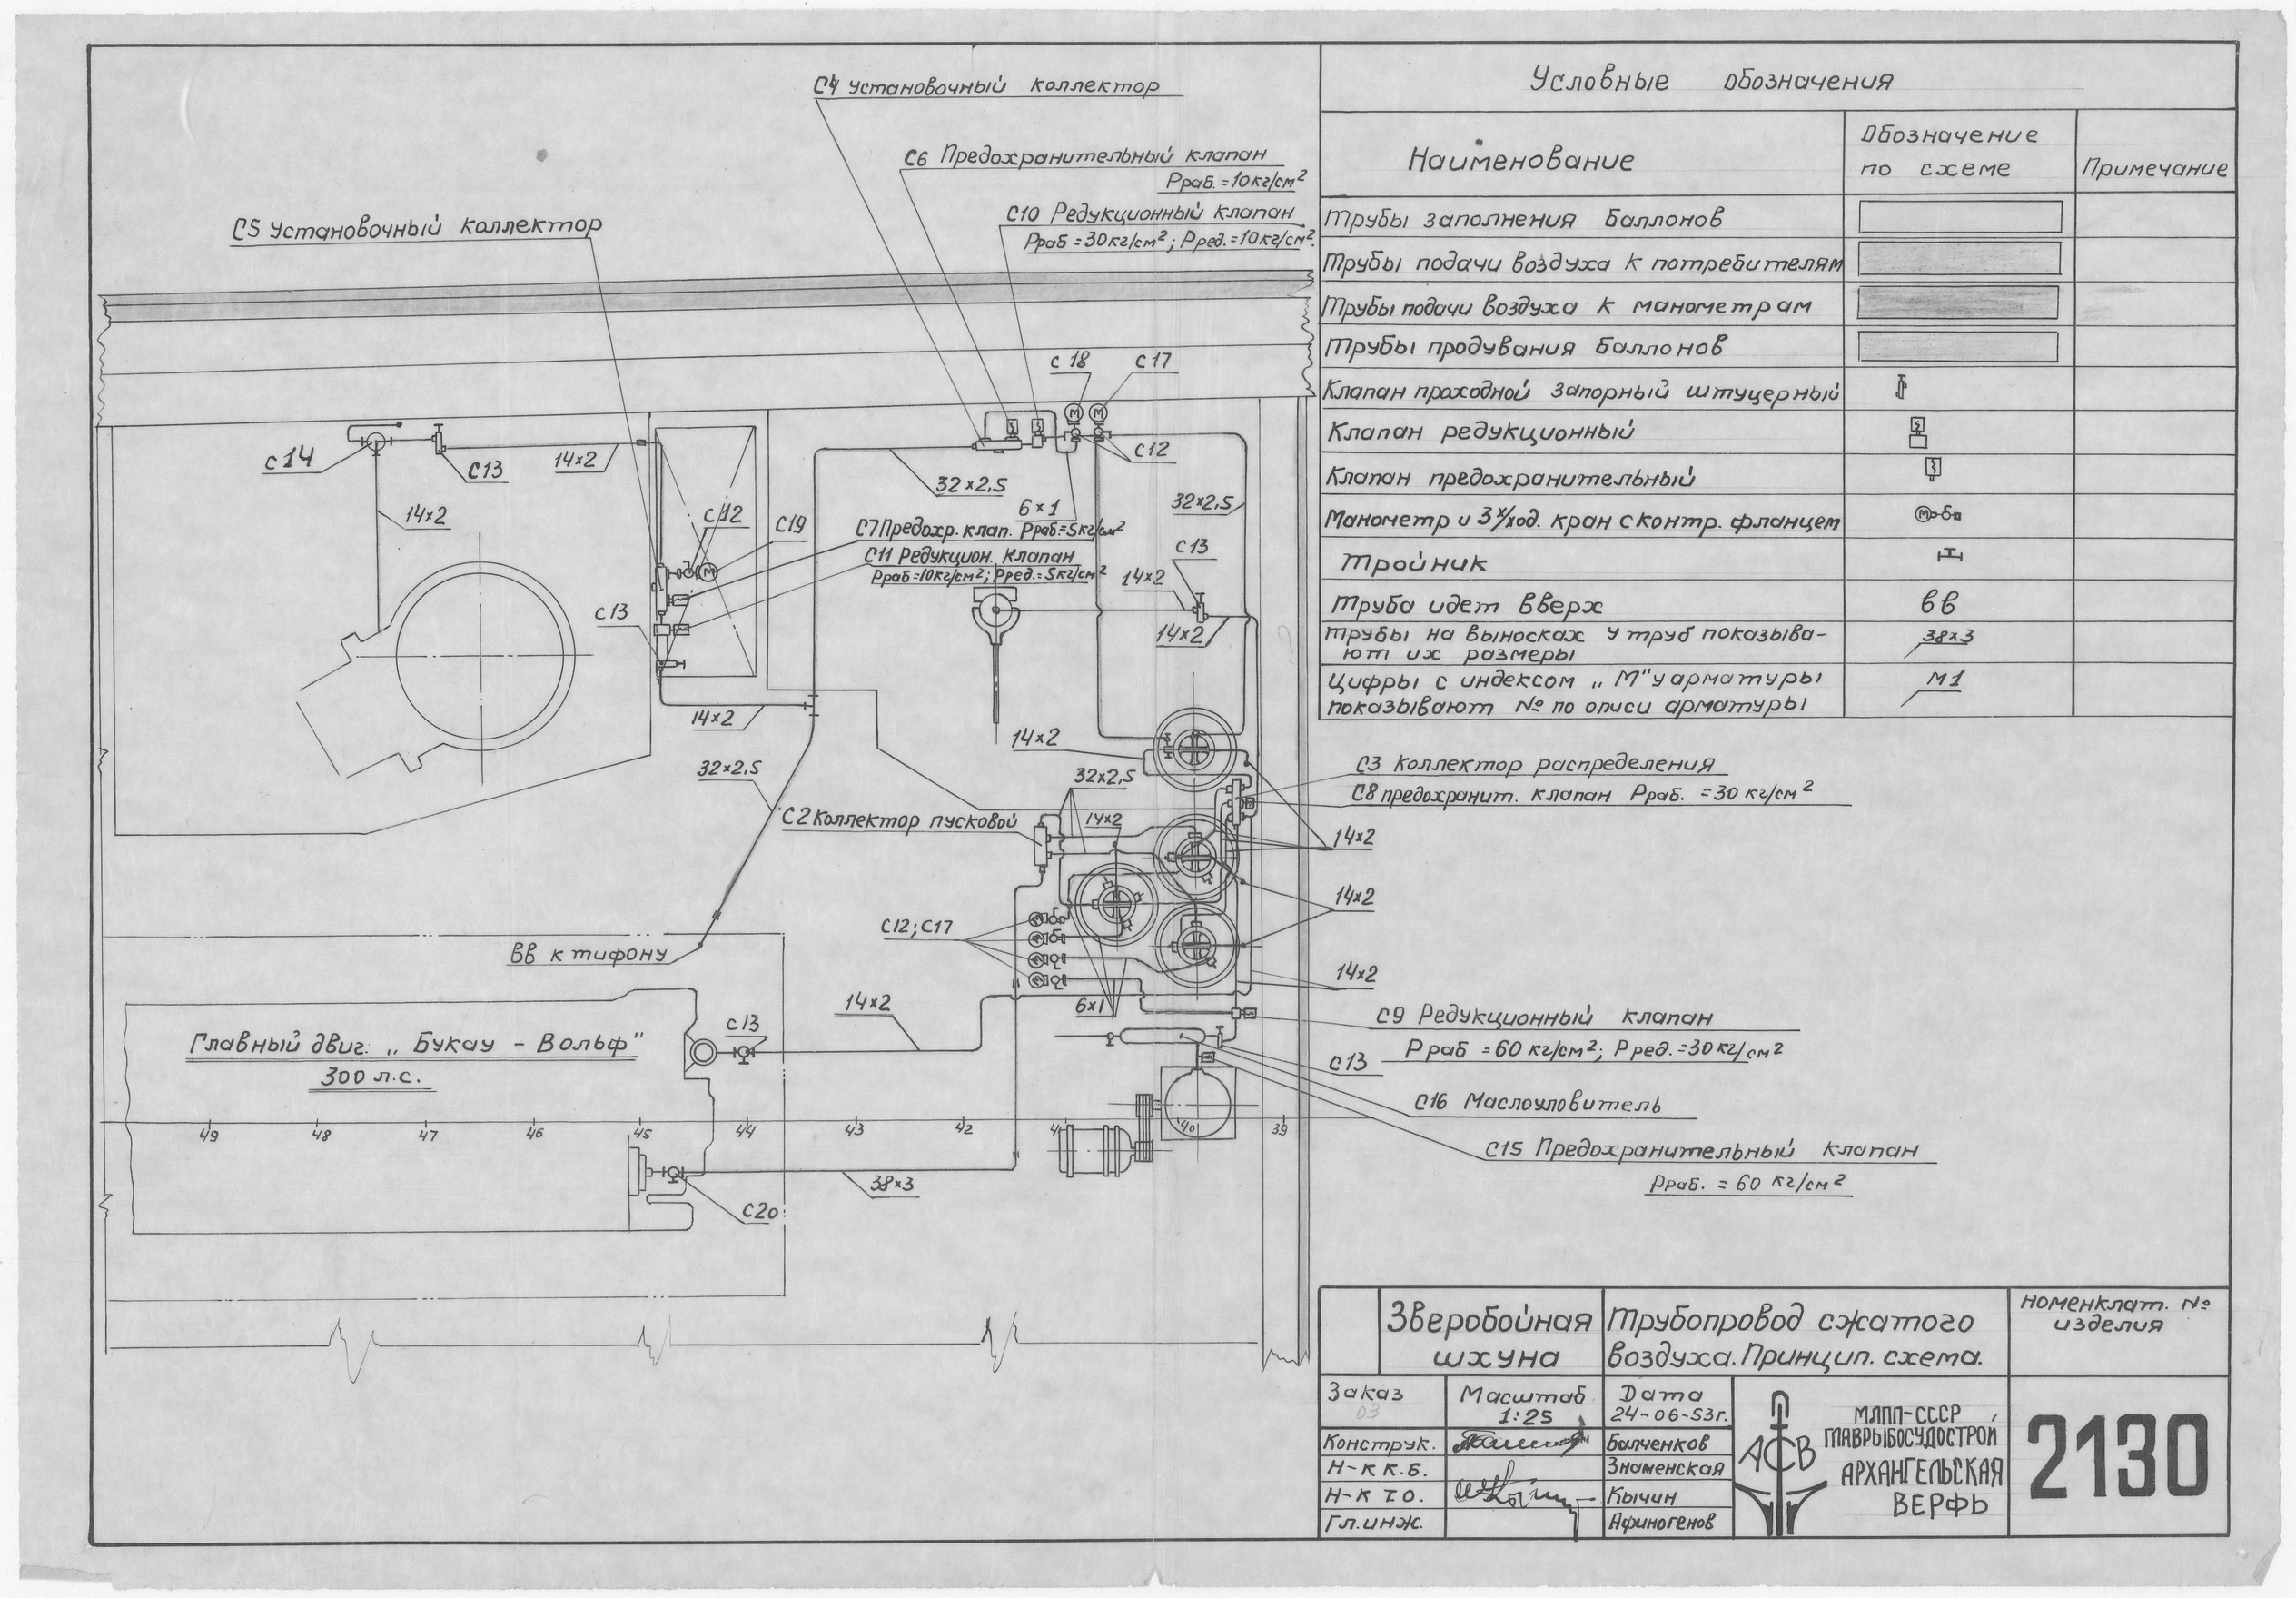 С4 Установочный коллектор
С6 Предохранительный клапан
Рраб.=10кг/см²
С10 Редукционный клапан
Рраб=30кг/см²; Рред.=10кг/см².
С5 Установочный коллектор
С18
С17
С14
С13
14×2
32×2,5
С12
14×2
6×1
32×2,5
С12
С19
С7 Предохр. клап. Рраб.=5кг/см²
С11 Редукцион. клапан
Рраб=10кг/см²; Рред.=5кг/см²
С13
14×2
С13
14×2
14×2
14×2
32×2,5
32×2,5
С2 Коллектор пусковой
14×2
С3 Коллектор распределения
С8 предохранит. клапан Рраб. =30 кг/см²
14×2
14×2
С12; С17
ВВ к тифону
14×2
14×2
6×1
С9 Редукционный клапан
Рраб =60 кг/см²; Рред.=30кг/см²
С13
Главный двиг. „Букау - Вольф"
300 л.с.
С13
С16 Маслоуловитель
49 48 47 46 45 44 43 42 41 40 39
С15 Предохранительный клапан
Рраб. = 60 кг/см²
38×3
С20
Условные обозначения
Наименование
Обозначение
по схеме
Примечание
Трубы заполнения баллонов
Трубы подачи воздуха к потребителям
Трубы подачи воздуха к манометрам
Трубы продувания баллонов
Клапан проходной запорный штуцерный
Клапан редукционный
Клапан предохранительный
Манометр и 3х/ход. кран с контр. фланцем
М
Тройник
Труба идет вверх
ВВ
Трубы на выносках у труб показыва-
ют их размеры
38×3
Цифры с индексом „М" у арматуры
показывают № по описи арматуры
М1
Зверобойная
шхуна
Трубопровод сжатого
воздуха. Принцип. схема.
Номенклат. №
изделия
Заказ
03
Масштаб
1:25
Дата
24-06-53г.
Конструк.
Балченков
Н-к К.Б.
Знаменская
Н-к Т О.
Кычин
Гл. инж.
Афиногенов
АСВ
МЛПП-СССР
ГЛАВРЫБОСУДОСТРОЙ
АРХАНГЕЛЬСКАЯ
ВЕРФЬ
2130